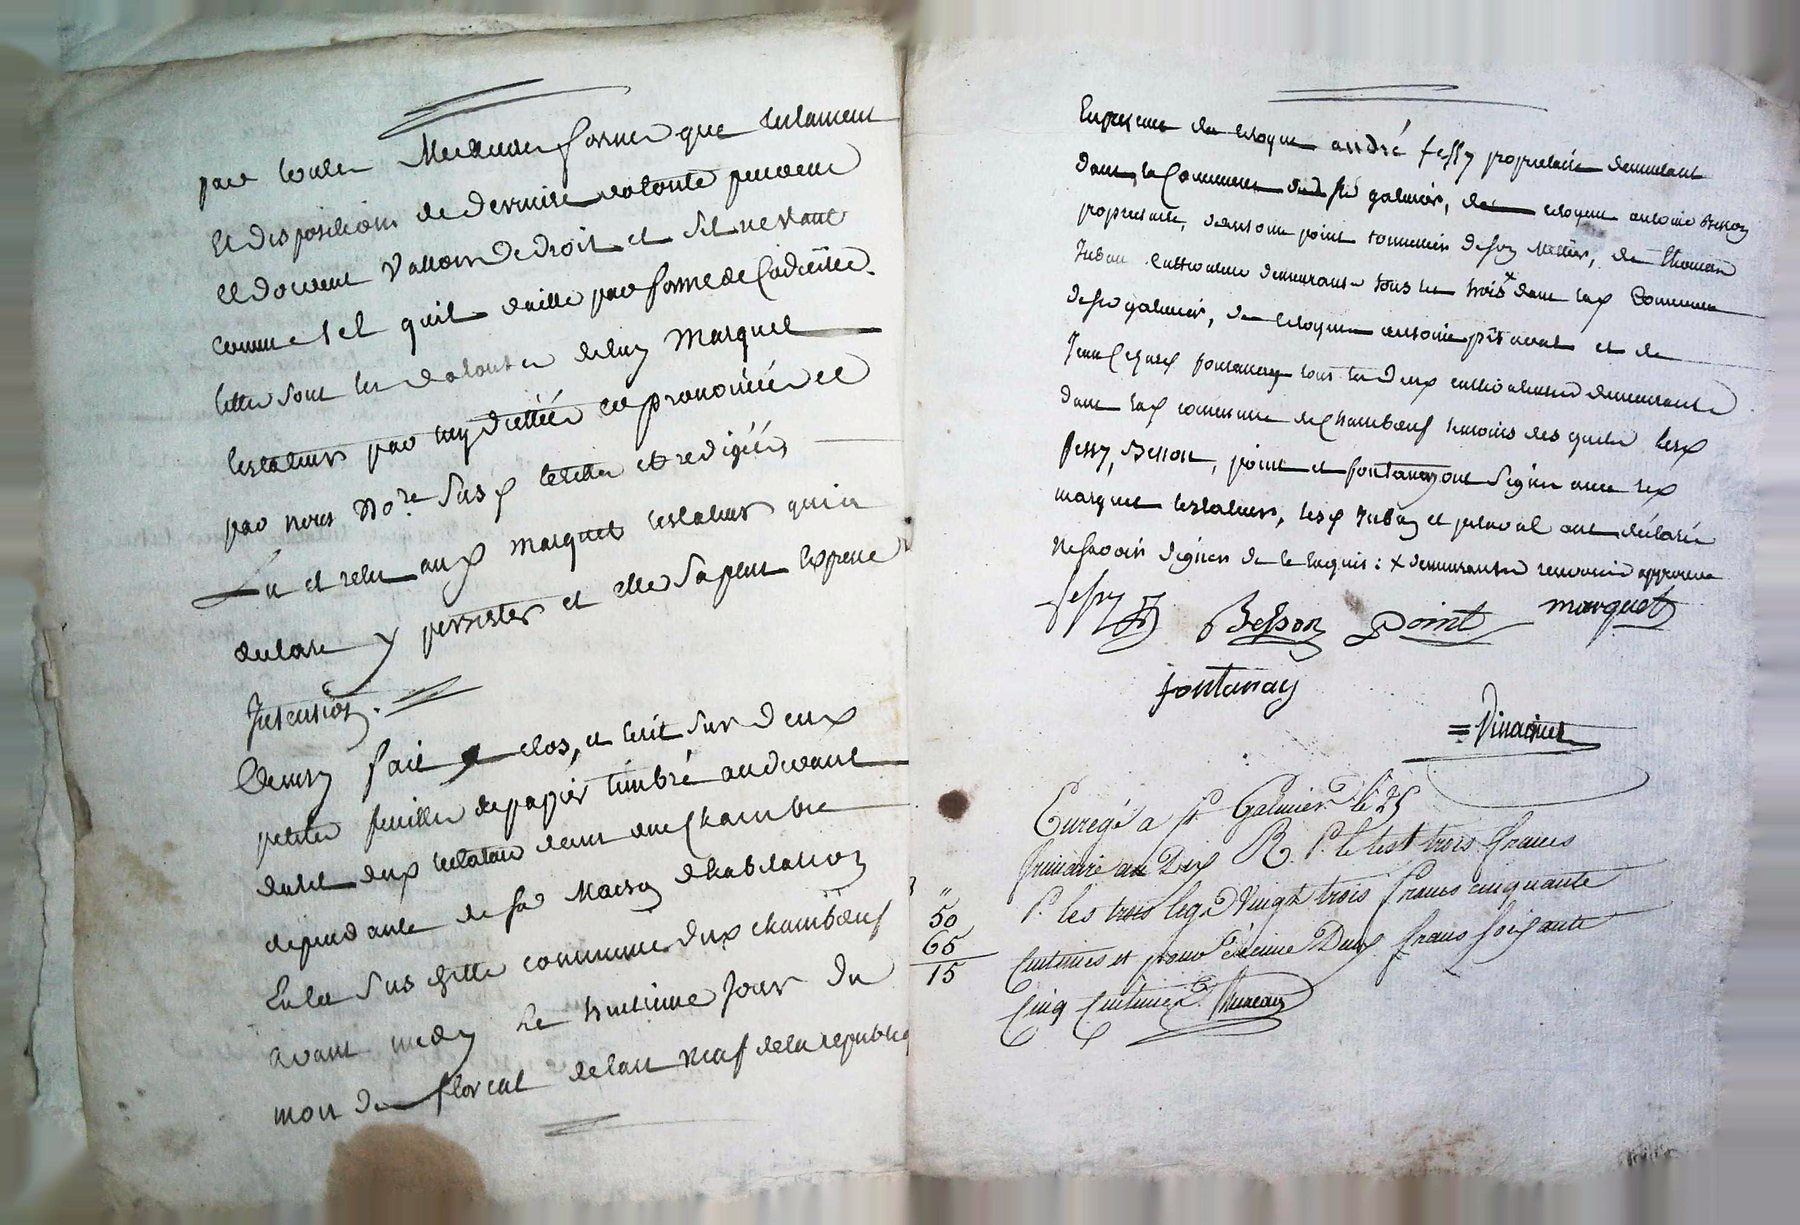 par toutes Meilleures formes que testament
Et dispositions de derniere volonté peuvent
Et doivent valloir de droit et sil ne vaut
comme tel quil vaille par forme de Codicille.
telles sont les volontés dudit marquet
testateur par luy dictées et prononcées et
par nous No.re susd
Lu et relu aud marquet testateur qui a
declaré y persister et estre sa pure Expresse
Intention.
fait et clos, et Ecrit sur deux
petites feuilles de papier timbré au devant
du lit dud testateur dans une Chambre
dependante de sa Maison d'habitation
En la susditte commune dud chambœuf
avant midy le huitieme Jour du
mois de floreal de lan neuf de la republiq
En presence du citoyen andré fessy proprietaire demeurant
dans la Commune de st galmier, du citoyen antoine Besson
proprietaire, d'antoine point tonnelier de son Métier, de thomas
Jubau cultivateur demeurants tous les trois x dans lad Commune
de st galmier, du citoyen antoine pitaval et de
Jean fontanay tous les deux cultivateurs demeurants
dans lad commune de chambœuf temoins desquels lesd
fessy, Besson, point et fontanay ont signé avec led
marquet testateur, lesd Jubau et pitaval ont déclaré
ne savoir signer de ce Enquis : x demeurants renvoi approuvé
fessy Besson point marquet
fontanay
= Vinaigrier
Enregé a st Galmier le 25
frimaire an Dix R. p.r le test trois francs
p.r les trois legs Vingt trois francs cinquante
Centimes et pour decime Deux francs soixante
Cinq Centimes
3 "
50
65
15